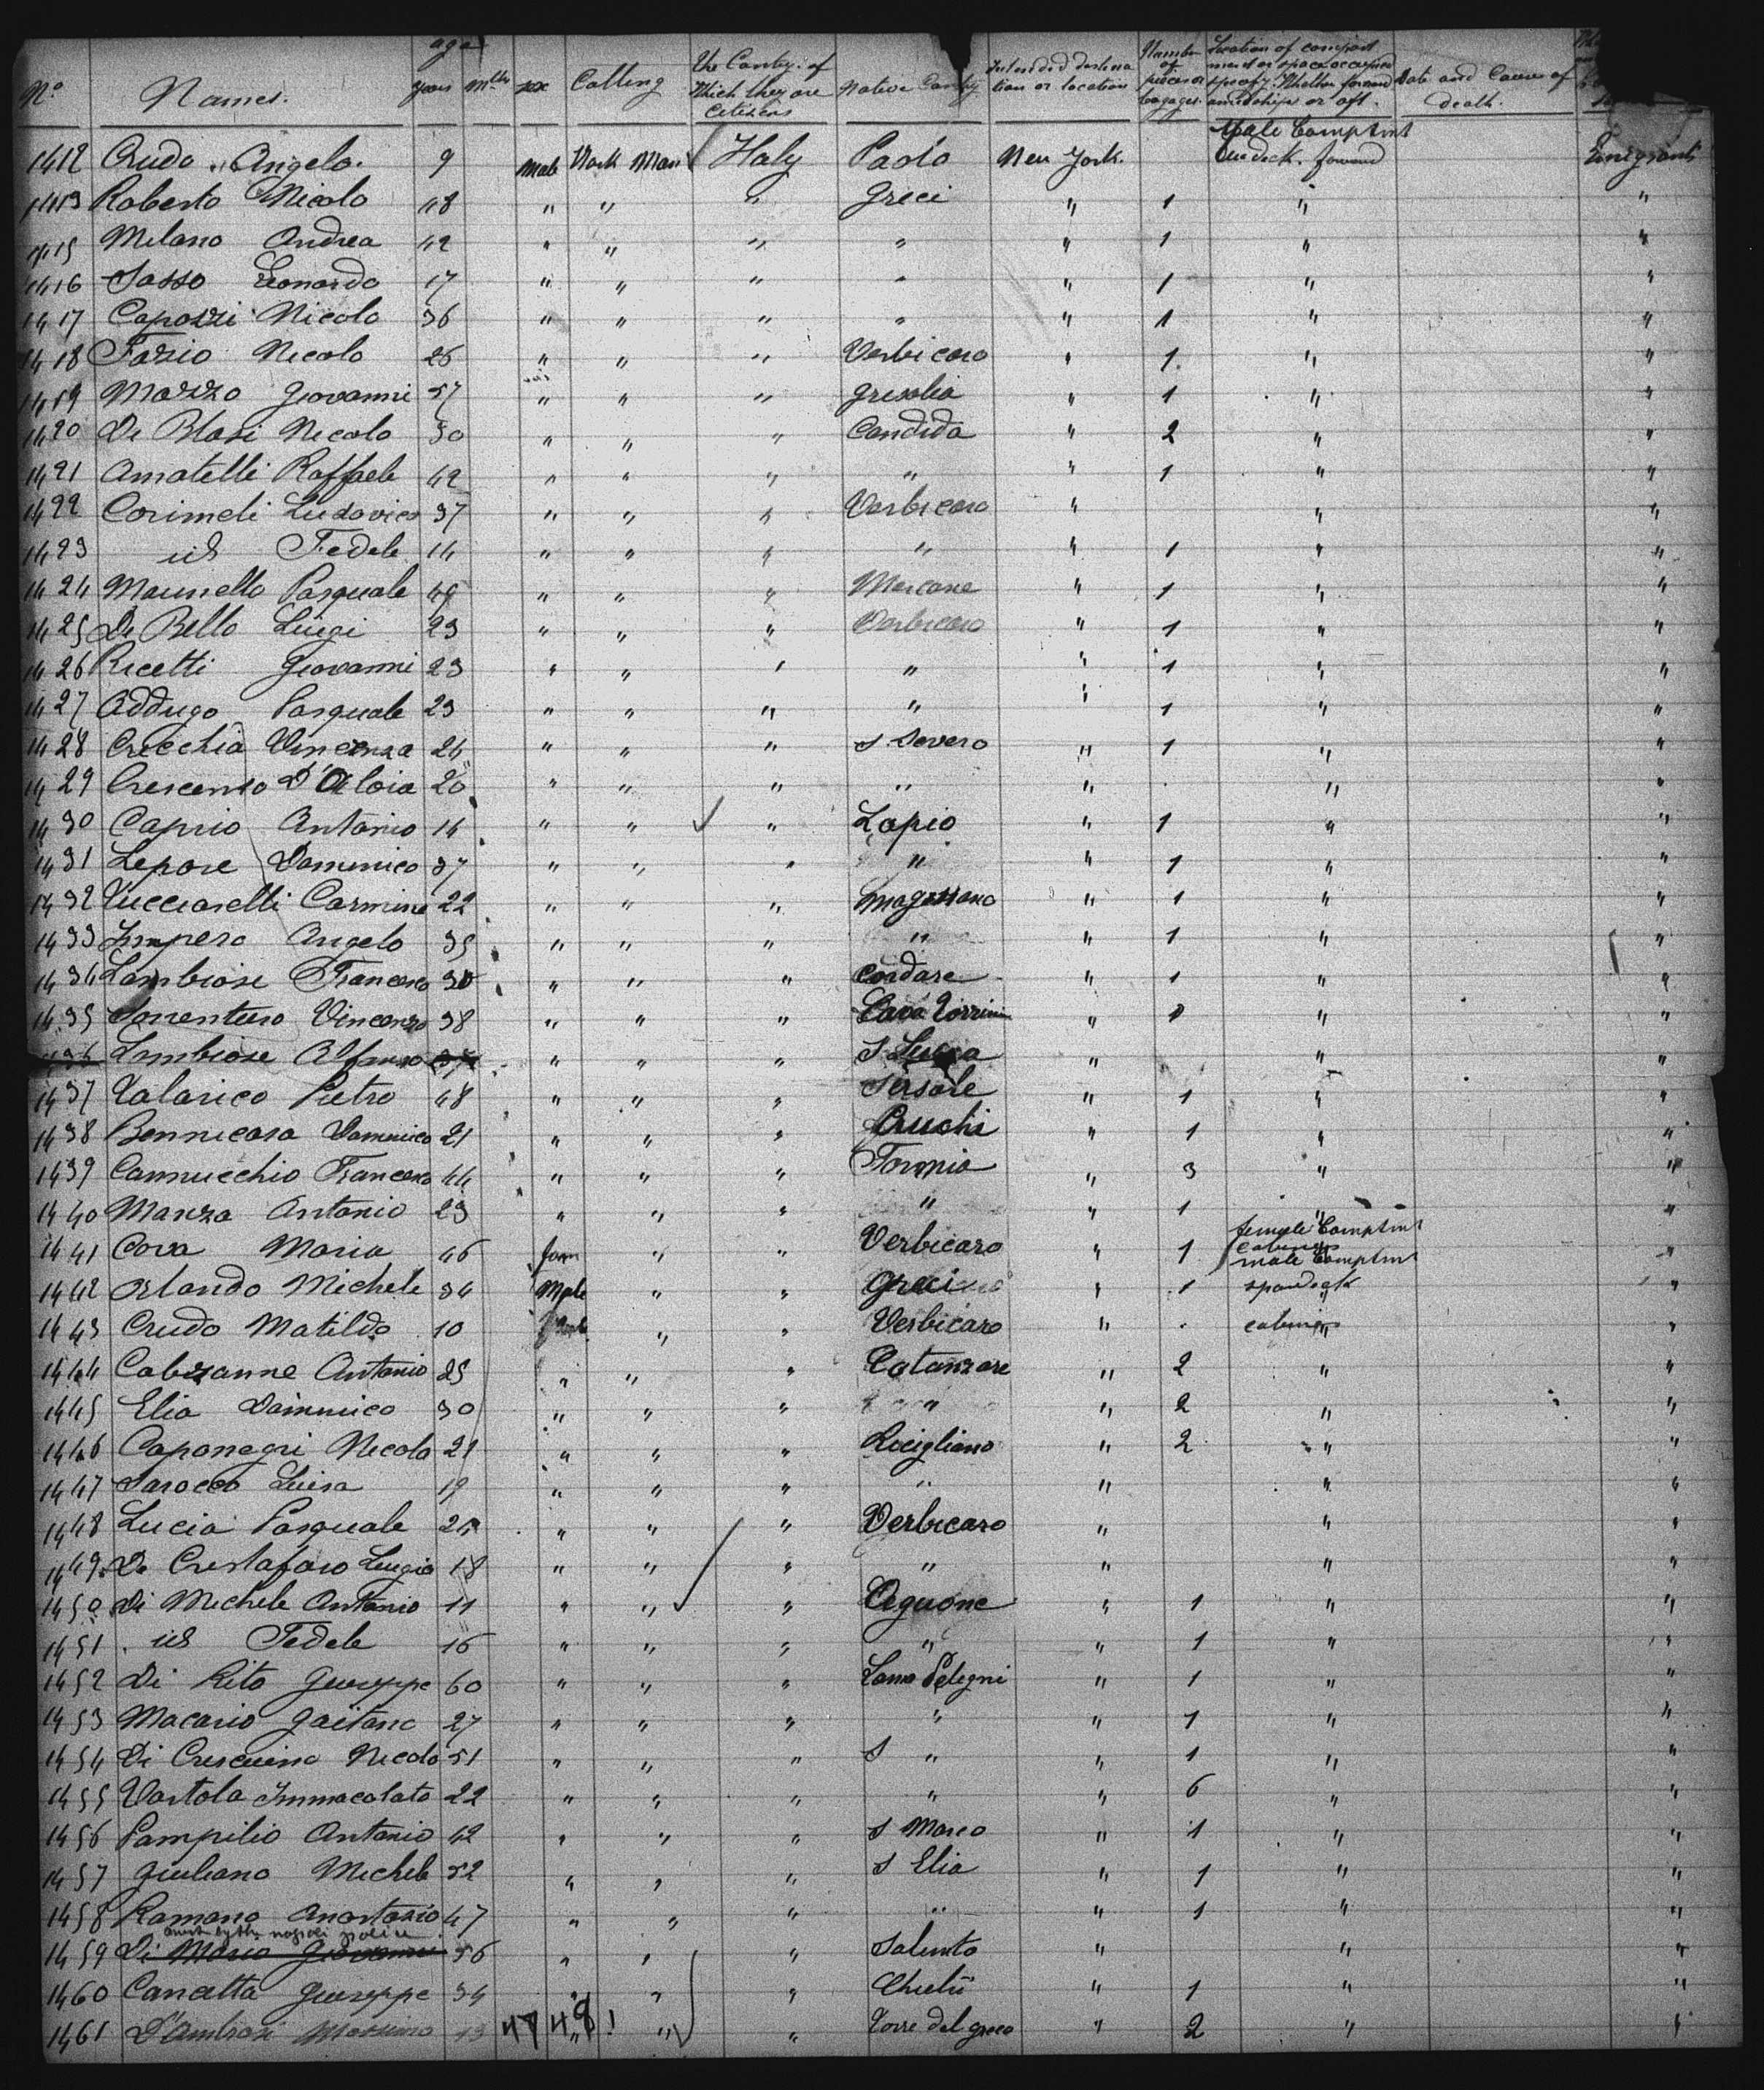 No Names. age years Mths sex Calling The Contry of Which they are Citizens Native Contry Intended destina tion or location Number of pieces of baggages Location of compart ment or space occupied specify Whether forward amidships or aft. Date and Cause of death.
1412 Crudo Angelo. 9 Male Work Man Italy Paolo New York. Male Comptmt forward Emigrants
1413 Roberto Nicolo 48 " " " Greci " 1 " "
1415 Milano Andrea 42 " " " " " 1 " "
1416 Sasso Leonardo 17 " " " " " 1 " "
1417 Capozzi Nicola 36 " " " " " 1 " "
1418 Fazio Nicolo 25 " " " Verbicaro " 1 " "
1419 Mazzo Giovanni 57 " " " Grisolia " 1 " "
1420 De Blasi Nicolo 30 " " " Candida " 2 " "
1421 Amatelli Raffaele 42 " " " " " 1 " "
1422 Corimeli Ludovico 37 " " " Verbicaro " " "
1423 id Fedele 14 " " " " " 1 " "
1424 Maunello Pasquale 49 " " " Morcone " 1 " "
1425 De Bello Luigi 23 " " " Verbicaro " 1 " "
1426 Ricetti Giovanni 23 " " " " " 1 " "
1427 Addugo Pasquale 23 " " " " " 1 " "
1428 Crecchia Vincenza 24 " " " S. Severo " 1 " "
1429 Crescenso D'Aloia 20 " " " " " " "
1430 Caprio Antonio 14 " " " Lapio " 1 " "
1431 Lepore Domenico 37 " " " " " 1 " "
1432 Vucciarelli Carmine 22 " " " " 1 " "
1433 Impero Angelo 35 " " " " " 1 " "
1434 Lambiose Francesco 30 " " " Cordare " 1 " "
1435 Sorrentuno Vincenzo 38 " " " Cava " 1 " "
1436 Lambiose Alfonso " " " S Lucia " " "
1437 Talarico Pietro 48 " " " Sersale " 1 " "
1438 Bennicasa Domenico 21 " " " " 1 " "
1439 Cannucchio Francesco 44 " " " Formia " 3 " "
1440 Manza Antonio 23 " " " " " 1 " "
1441 Cova Maria 46 fem " " Verbicaro " 1 female Comptmt cabines "
1442 Orlando Michele 34 Male " " Greci " 1 male Comptmt spardeck "
1443 Crudo Matilda 10 " " Verbicaro " cabines "
1444 Cabzanne Antonio 25 " " " Catanzare " 2 " "
1445 Elia Dominico 30 " " " " " 2 " "
1446 Caponegri Nicola 21 " " " Ricigliano " 2 " "
1447 Sarocco Luisa 19 " " " " " " "
1448 Lucia Pasquale 25 " " " Verbicaro " " "
1449 De Crestofaro Luigia 18 " " " " " " "
1450 Di Michele Antonio 11 " " " Agnone " 1 " "
1451 id Fedele 16 " " " " " 1 " "
1452 Di Rito Giuseppe 60 " " " Lama Pelegni " 1 " "
1453 Macario Gaitano 27 " " " " " 1 " "
1454 Di Crescuino Nicola 51 " " " S " " 1 " "
1455 Vartola Immacolata 22 " " " " " 6 " "
1456 Pampilio Antonio 42 " " " S Marco " 1 " "
1457 Giuliano Michele 52 " " " S Elia " 1 " "
1458 Romano Anastasio 47 " " " " " 1 " "
by the napoli police
1459 Di Mario Giovanni 56 " " " Salento " " "
1460 Cancetta Giuseppe 34 " " " Chieti " 1 " "
1461 D'Ambrosi Massimo 47 48 ! " " " Torre del greco " 2 " "